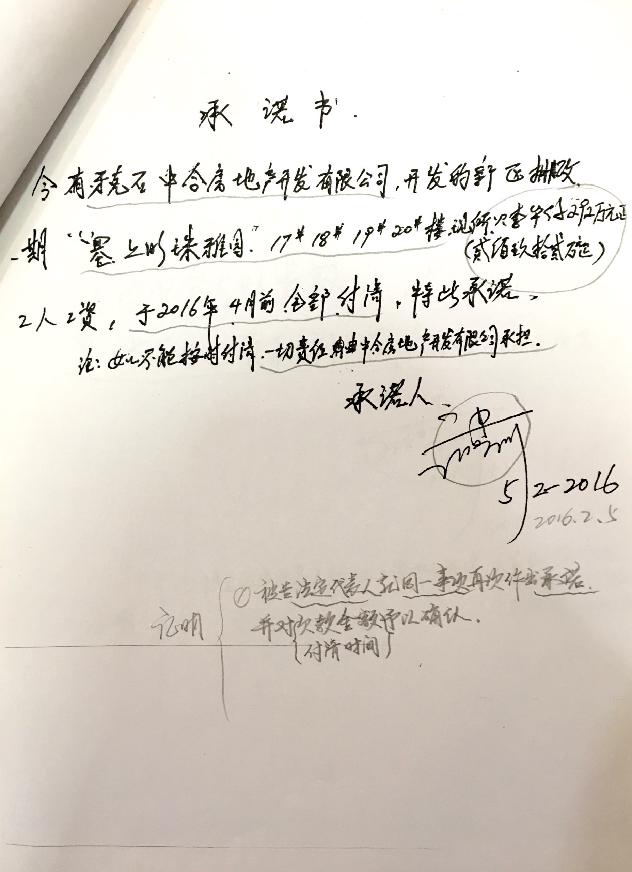 承诺书.
今有牙克石中合房地产开发有限公司,开发的新区棚改
一期“塞上明珠雅园”17# 18# 19# 20#楼,现所欠李 292万元正
(贰佰玖拾贰万正)
工人工资,于2016年4月前全部付清,特此承诺。
注:如不能按时付清.一切责任 由中合房地产开发有限公司承担.
承诺人
5 2-2016
2016.2.5
证明
① 被告法定代表人就同一事项再次作出承诺.
并对欠款金额予以确认.
付清时间